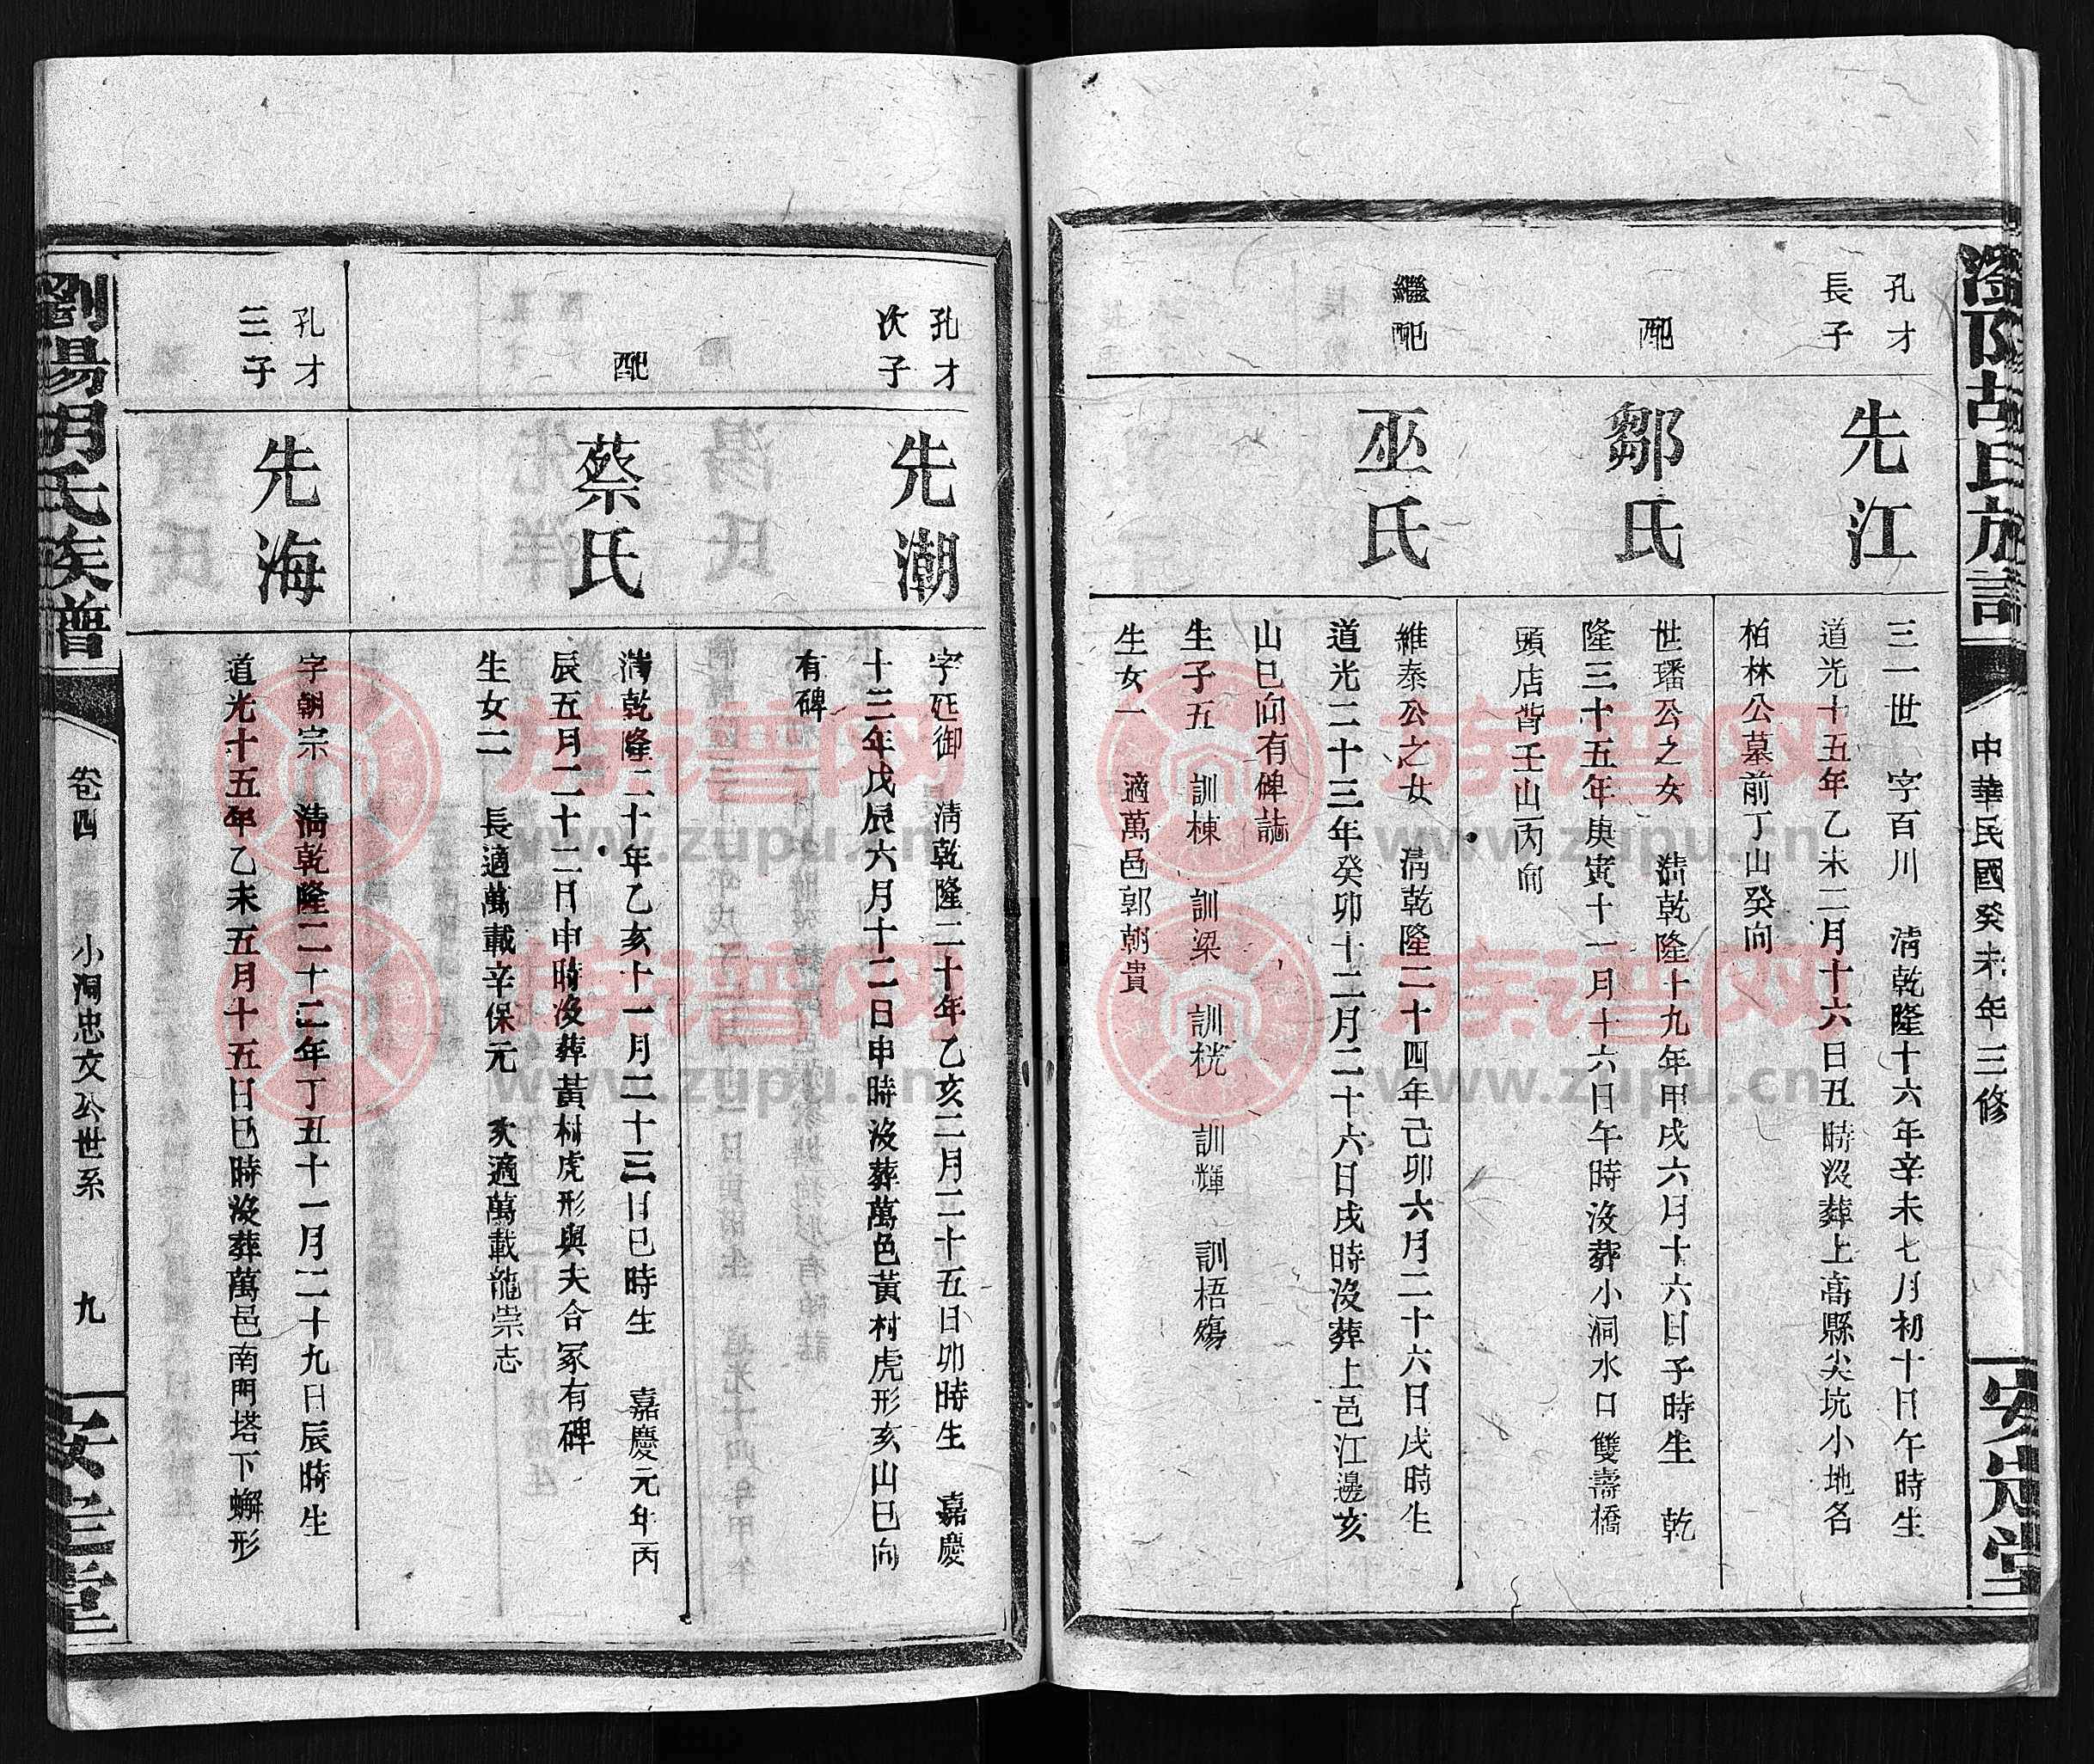 瀏陽胡氏族譜
中華民國癸未年三修
安定堂
孔才
長子
先江
三一世 字百川 清乾隆十六年辛未七月初十日午時生
道光十五年乙未二月十六日丑時沒葬上高縣尖坑小地名
柏林公墓前丁山癸向
配
鄒氏
世璠公之女 清乾隆十九年甲戌六月十六日子時生 乾
隆三十五年庚寅十一月十六日午時沒葬小洞水口雙壽橋
頭店背壬山丙向
繼配
巫氏
維泰公之女 清乾隆二十四年己卯六月二十六日戌時生
道光二十三年癸卯十二月二十六日戌時沒葬上邑江邊亥
山巳向有碑誌
生子五 訓棟 訓梁 訓桄 訓輝 訓梧殤
生女一 適萬邑郭朝貴
孔才
次子
先潮
字延御 清乾隆二十年乙亥二月二十五日卯時生 嘉慶
十三年戊辰六月十二日申時沒葬萬色黃村虎形亥山巳向
有碑
配
蔡氏
清乾隆二十年乙亥十一月二十三日巳時生 嘉慶元年丙
辰五月二十二日申時沒葬黃村虎形與夫合冢有碑
生女二 長適萬載辛保元 次適萬載龍崇志
孔才
三子
先海
字朝宗 清乾隆二十二年丁丑十一月二十九日辰時生
道光十五年乙未五月十五日巳時沒葬萬邑南門塔下蠏形
瀏陽胡氏族譜
卷四 小洞忠文公世系 九
安定堂
族谱网
www.zupu.cn
族谱网
www.zupu.cn
族谱网
www.zupu.cn
族谱网
www.zupu.cn